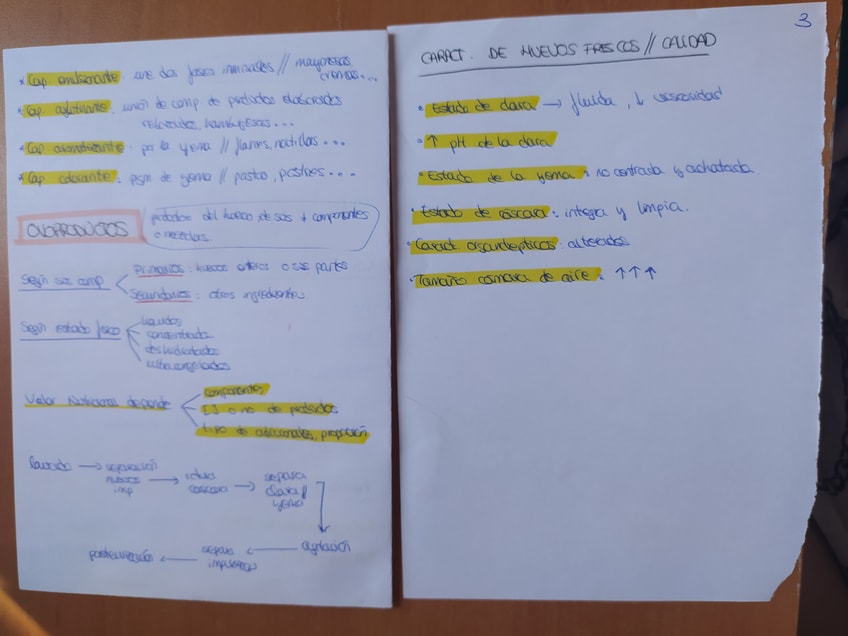 * Cap. emulsionante: une dos fases inmiscibles // mayonesas,
cremas...
* Cap. aglutinante: unión de comp de productos elaborados
rebozados, hamburguesas...
* Cap aromatizante: por la yema // flanes, natillas...
* Cap colorante: pigm de yema // pastas, postres...
OVOPRODUCTOS
productos del huevo, de sus ≠ componentes
o mezclas.
Según sus comp
Primarios: huevos enteros o sus partes
Secundarios: otros ingredientes
Según estado físico
líquidos
concentrados
deshidratados
ultracongelados
Valor nutricional depende
componentes
[ ] o no de productos
tipo de adicionales, proporción
lavado → separación
huevos
imp
→ rotura
cáscara
→ separa
clara y
yema
agitación
← separa
impurezas
← pasteurización
3
CARACT. DE HUEVOS FRESCOS // CALIDAD
· Estado de clara → fluida, ↓ viscosidad
· ↑ pH de la clara
· Estado de la yema: no centrada y achatada.
· Estado de cáscara: íntegra y limpia.
· Caract organolépticos: alterados
· Tamaño cámara de aire: ↑↑↑